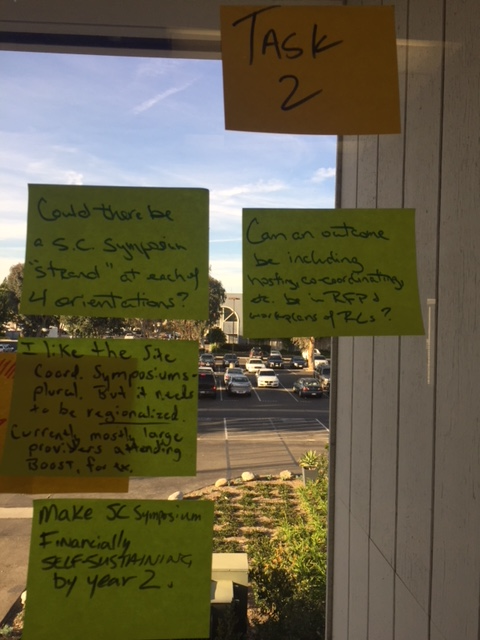 TASK
2
Could there be
a S.C. Symposium
"strand" at each of
4 orientations?
Can an outcome
be including
hosting, co-coordinating
etc. be in RFP's
workplans of RLs?
I like the Site
Coord. Symposiums-
plural. But it needs
to be regionalized.
Currently mostly large
providers attending
BOOST, for ex.
Make SC Symposium
Financially
SELF-SUSTAINING
by year 2.